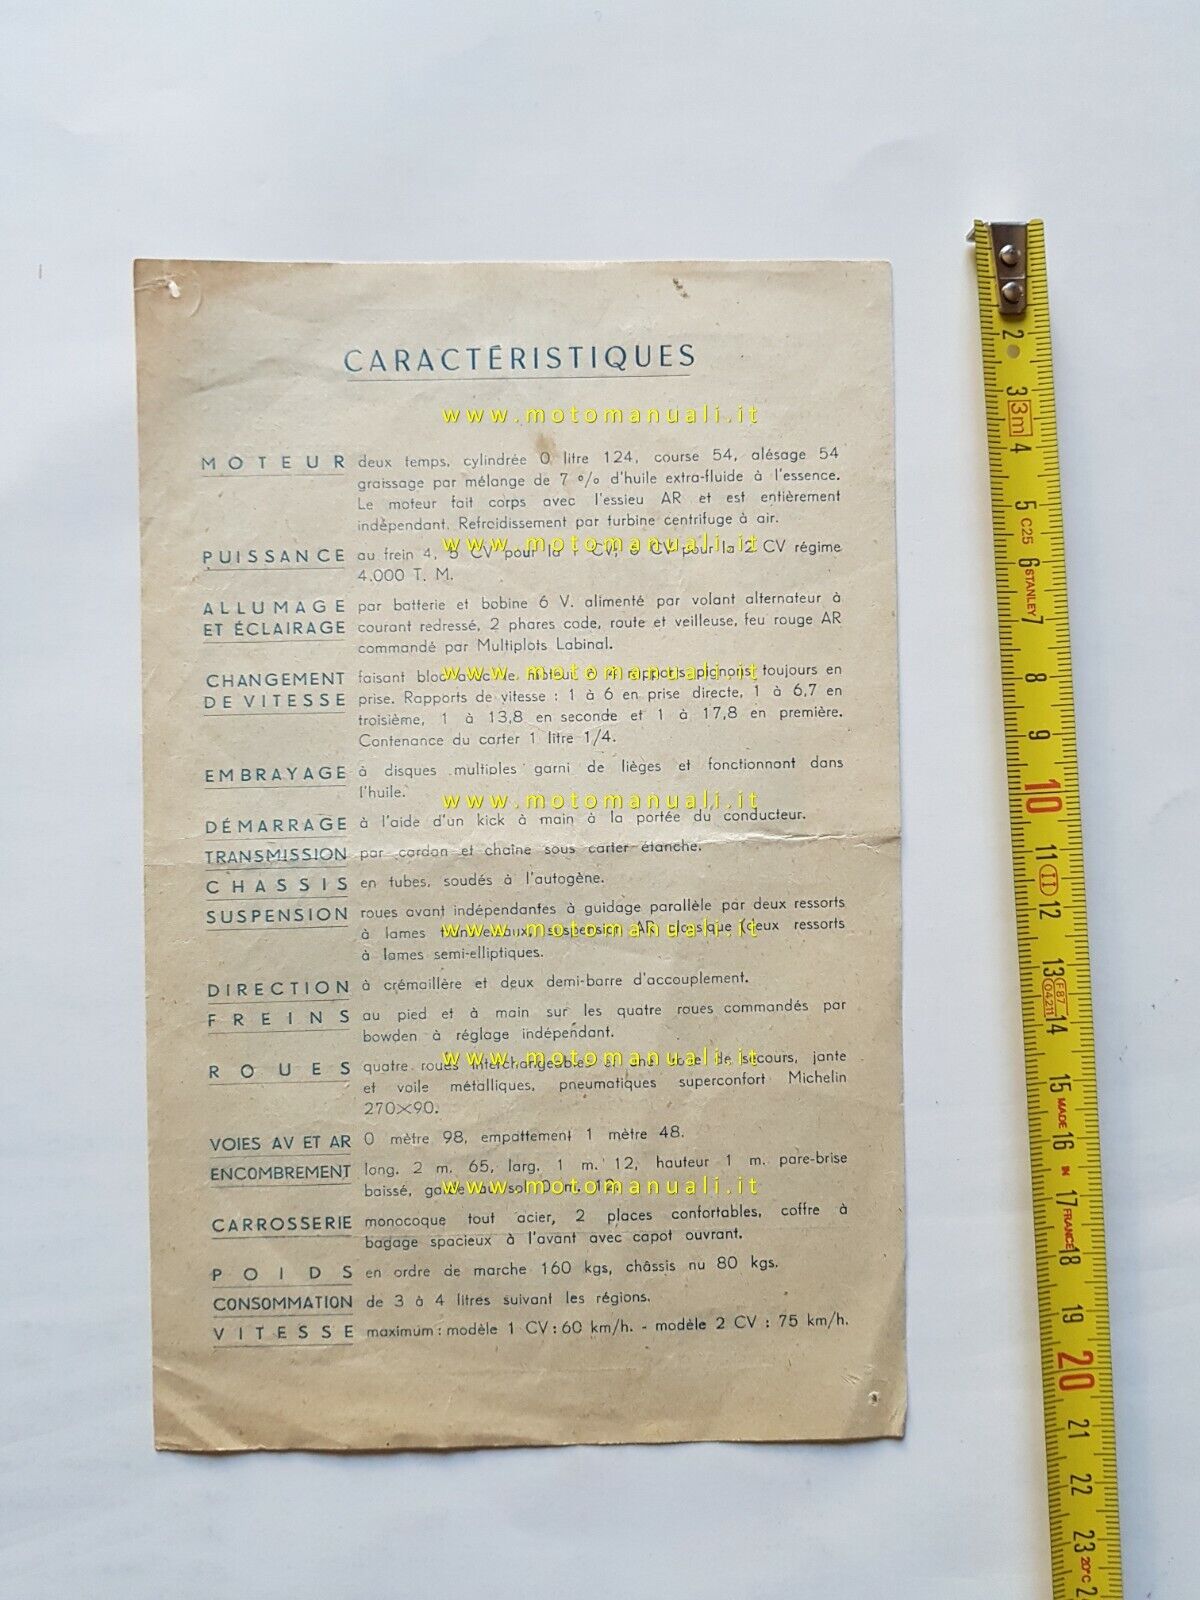 CARACTÉRISTIQUES
www.motomanuali.it
MOTEUR deux temps, cylindrée 0 litre 124, course 54, alésage 54
graissage par mélange de 7 % d'huile extra-fluide à l'essence.
Le moteur fait corps avec l'essieu AR et est entièrement
indépendant. Refroidissement par turbine centrifuge à air.
www.motomanuali.it
PUISSANCE au frein 4, 5 CV pour la 1 CV, 6 CV pour la 2 CV régime
4.000 T. M.
ALLUMAGE par batterie et bobine 6 V. alimenté par volant alternateur à
ET ÉCLAIRAGE courant redressé, 2 phares code, route et veilleuse, feu rouge AR
commandé par Multiplots Labinal.
www.motomanuali.it
CHANGEMENT faisant bloc avec le moteur à 4 rapports pignons toujours en
DE VITESSE prise. Rapports de vitesse : 1 à 6 en prise directe, 1 à 6,7 en
troisième, 1 à 13,8 en seconde et 1 à 17,8 en première.
Contenance du carter 1 litre 1/4.
EMBRAYAGE à disques multiples garni de lièges et fonctionnant dans
l'huile.
www.motomanuali.it
DÉMARRAGE à l'aide d'un kick à main à la portée du conducteur.
TRANSMISSION par cardan et chaîne sous carter étanche.
CHASSIS en tubes, soudés à l'autogène.
SUSPENSION roues avant indépendantes à guidage parallèle par deux ressorts
à lames transversaux, suspension AR classique (deux ressorts
www.motomanuali.it
à lames semi-elliptiques.
DIRECTION à crémaillère et deux demi-barre d'accouplement.
FREINS au pied et à main sur les quatre roues commandés par
bowden à réglage indépendant.
www.motomanuali.it
ROUES quatre roues interchangeables et une roue de secours, jante
et voile métalliques, pneumatiques superconfort Michelin
270×90.
VOIES AV ET AR 0 mètre 98, empattement 1 mètre 48.
ENCOMBREMENT long. 2 m. 65, larg. 1 m. 12, hauteur 1 m. pare-brise
baissé, garde au sol 0 m. 12.
www.motomanuali.it
CARROSSERIE monocoque tout acier, 2 places confortables, coffre à
bagage spacieux à l'avant avec capot ouvrant.
POIDS en ordre de marche 160 kgs, châssis nu 80 kgs.
CONSOMMATION de 3 à 4 litres suivant les régions.
VITESSE maximum : modèle 1 CV : 60 km/h. - modèle 2 CV : 75 km/h.
2
3
3m
4
5
C25
6
STANLEY
7
8
9
10
11
II
12
13
F 87
04211
14
15
MADE
16
IN
17
FRANCE
18
19
20
21
22
23
20°C